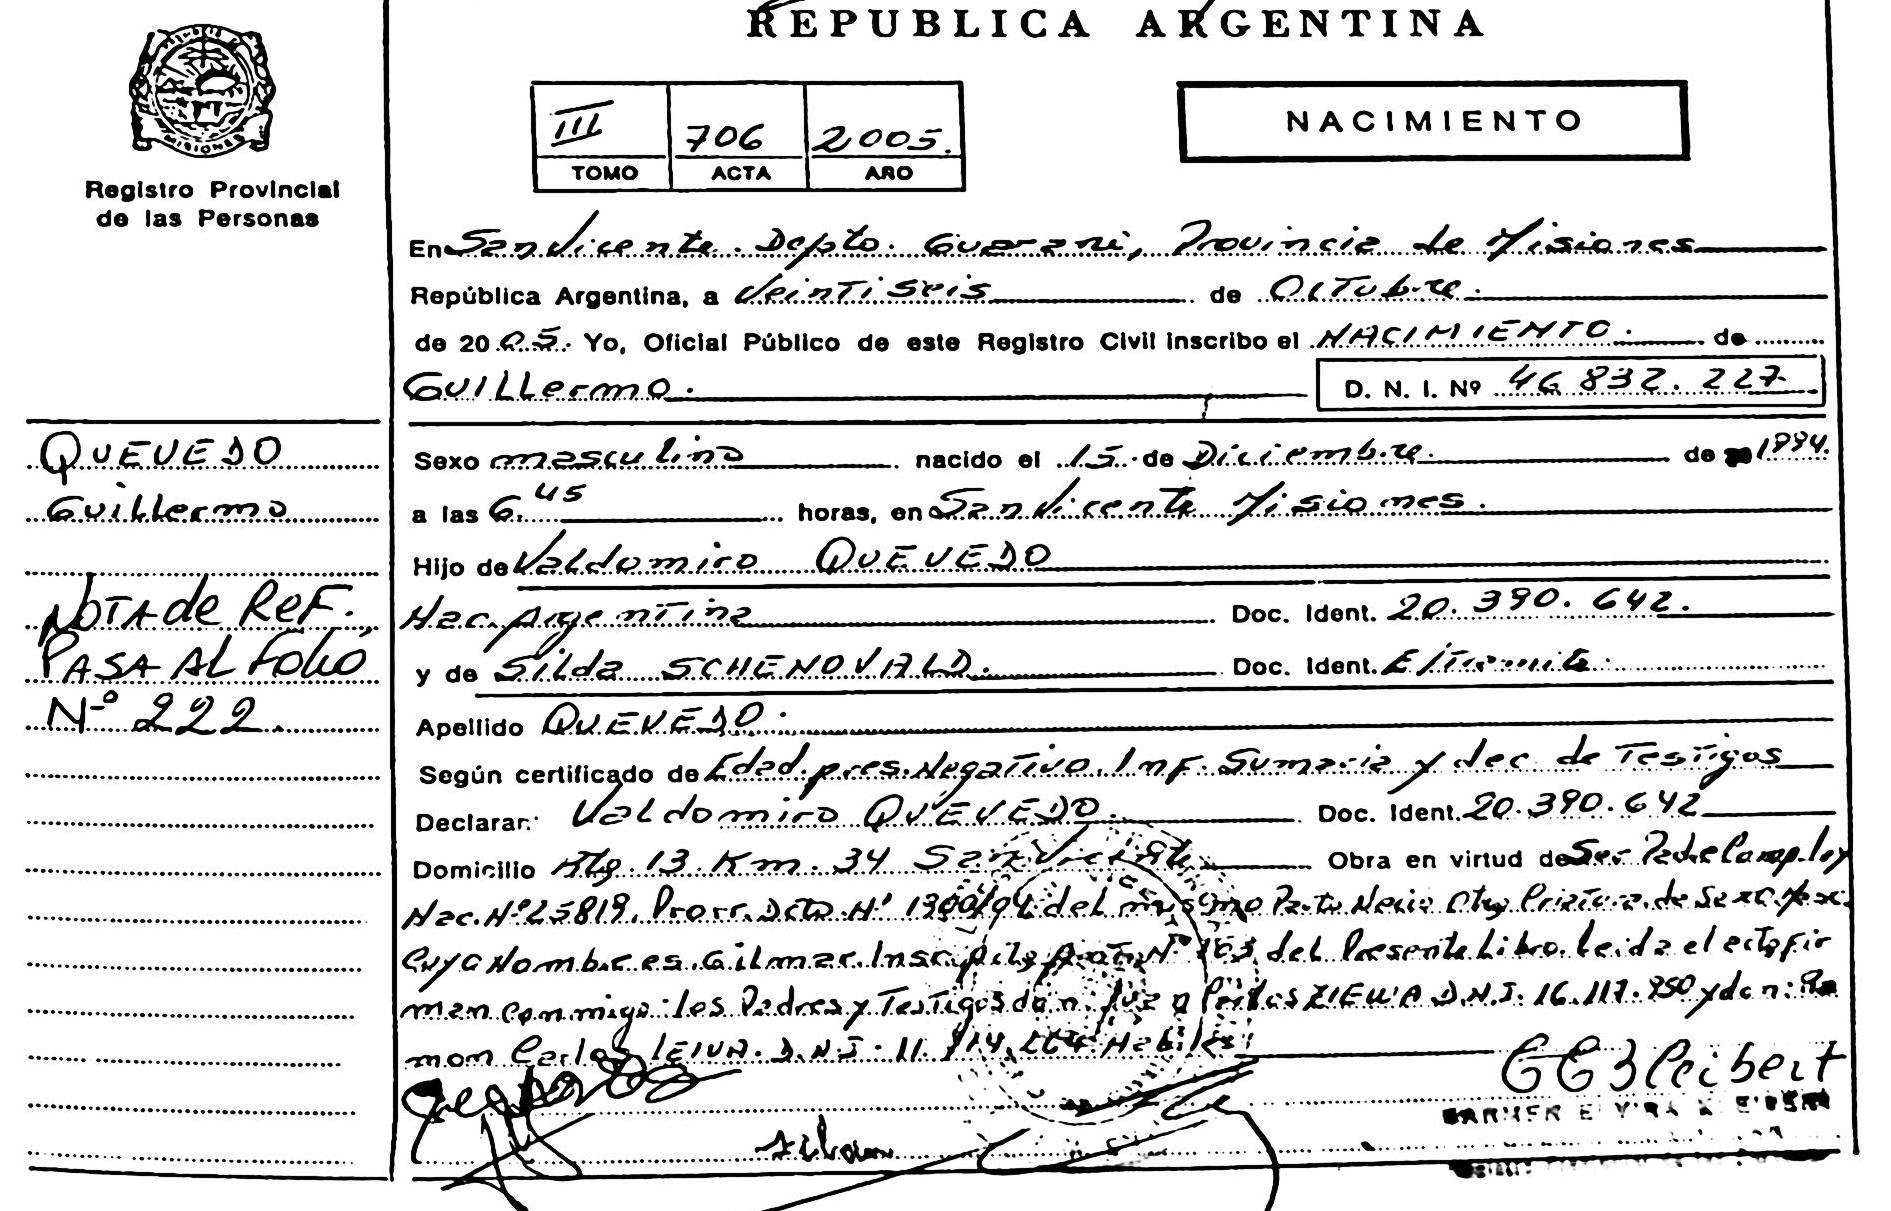 REPUBLICA ARGENTINA
MISIONES
Registro Provincial
de las Personas
III 706 2005.
TOMO ACTA AÑO
NACIMIENTO
En San Vicente. Depto. Guarani, Provincia de Misiones
República Argentina, a Veintiseis de Octubre.
de 2005. Yo, Oficial Público de este Registro Civil inscribo el NACIMIENTO. de
Guillermo. D. N. I. Nº 46 832. 227
QUEVEDO
Guillermo
NOTA de REF.
PASA AL FOLIO
Nº 222.
Sexo masculino nacido el 15 de Diciembre. de 1994.
a las 6.45 horas, en San Vicente Misiones.
Hijo de Valdomiro QUEVEDO
Nac. Argentina Doc. Ident. 20. 390. 642.
y de Silda SCHENOVALD. Doc. Ident. E/Tramite.
Apellido QUEVEDO.
Según certificado de Edad. pres. Negativo. Inf. Sumaria y dec. de Testigos
Declarar: Valdomiro QUEVEDO. Doc. Ident. 20.390.642
Domicilio 13. Km. 34 San Vicente Obra en virtud de Ser Padre Comp. ley
Nac. Nº 25819. Prorr. Dcto. Nº del mismo Parto Nacio de Sexo Masc.
Cuyo Nombre es Gilmar. Nº del Presente Libro. Leida el acta fir
man conmigo: los Padres y Testigos don. Juan Carlos ZIEWA D.N.I. 16.117.950 y don: Ra
mon Carlos LEIVA. D.N.I. 11 Habiles